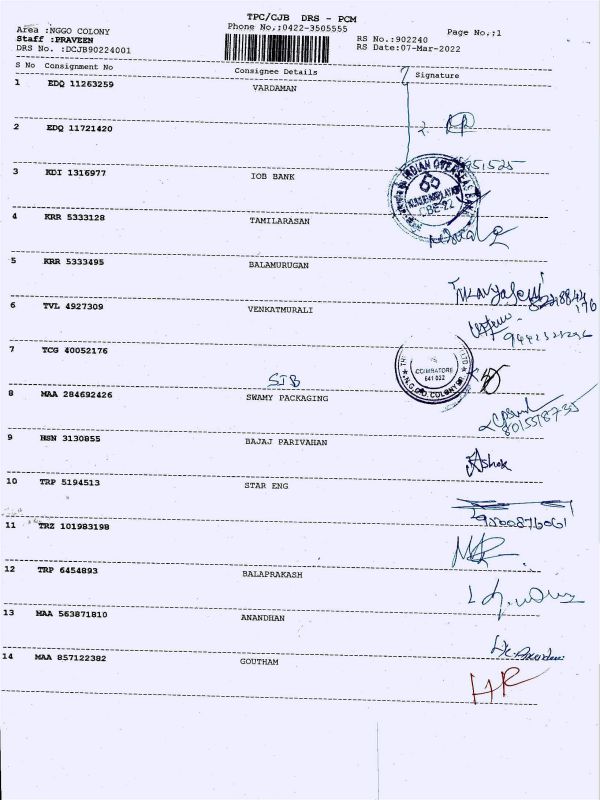 TPC/CJB DRS - PCM
Area :NGGO COLONY Phone No,:0422-3505555 Page No,;1
Staff :PRAVEEN RS No.:902240
DRS No. :DCJB90224001 RS Date:07-Mar-2022
S No Consignment No Consignee Details Signature
1 EDQ 11263259 VARDAMAN
2 EDQ 11721420
3 KDI 1316977 IOB BANK
INDIAN OVERSEAS BANK
4 KRR 5333128 TAMILARASAN
5 KRR 5333495 BALAMURUGAN
6 TVL 4927309 VENKATMURALI
7 TCG 40052176
COIMBATORE
641 022
N.G.G.O. COLONY
SJB
8 MAA 284692426 SWAMY PACKAGING
8015518735
9 HSN 3130855 BAJAJ PARIVAHAN
Ashok
10 TRP 5194513 STAR ENG
9500876061
11 TRZ 101983198
12 TRP 6454893 BALAPRAKASH
13 MAA 563871810 ANANDHAN
14 MAA 857122382 GOUTHAM
HR